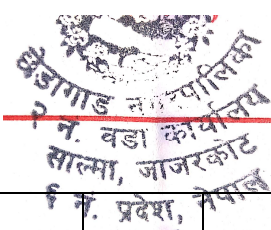 छेडागाड नगरपालिका
२ नं. वडा कार्यालय
साल्मा, जाजरकोट
६ नं. प्रदेश, नेपाल